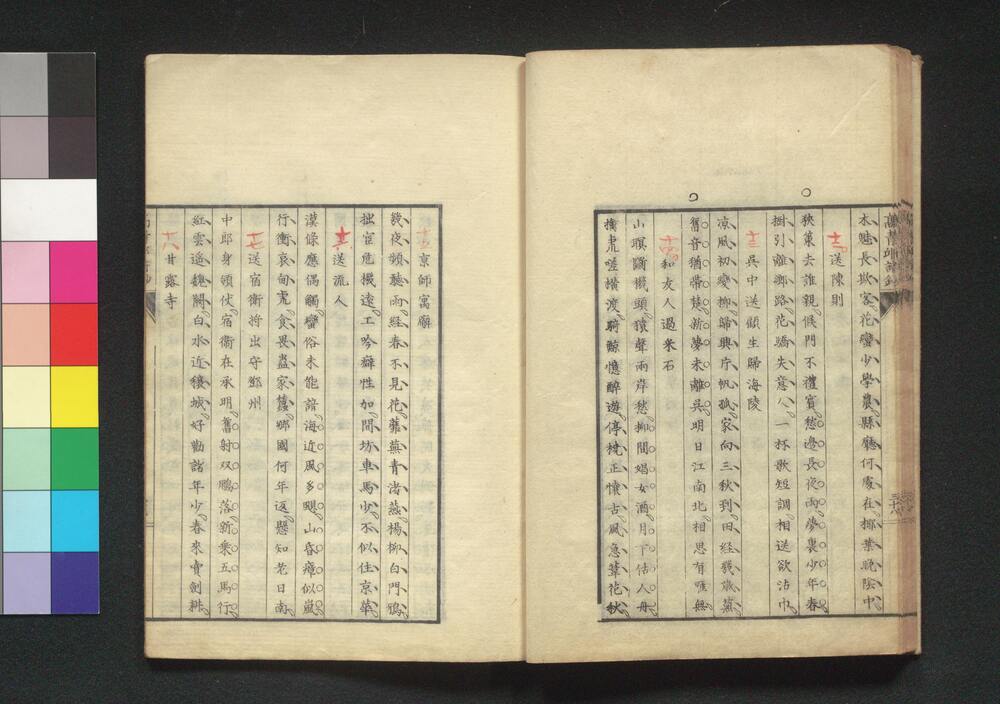 高青邱詩鈔
木魅長欺客花蠻少學農縣廳何處在椰葉晚陰中
十二 送陳則
狹策去誰親候門不禮賓愁邊長夜雨夢裏少年春
樹引離鄉路花驕失意人一杯歌短調相送欲沾巾
十三 吳中送顧生歸海陵
凉風初變柳歸興斥帆孤家向三秋到田經幾歲蕪
舊音猶帶楚新夢未離吳明日江南北相思有雁無
十四 和友人過采石
山暝斷機頭猿聲兩岸愁柳間娼女酒月下估人舟
擒虎嗟橫渡騎鯨憶醉遊停橈正懷古風急葦花秋
十五 京師寓廨
幾夜頻聽雨經春不見花蘼蕪青渚燕楊柳白門鴉
拙宦危機遠工吟癖性加間坊車馬少不似住京華
十六 送流人
漠條應偶觸蠻俗未能諳海近風多颶山昏瘴似嵐
行衝哀甸虎食畏蠱家蠶鄉國何年返懸知老日南
十七 送宿衛將出守鄧州
中郎身領仗宿衛在承明舊射双鵰落新乘五馬行
紅雲遙魏闕白水近穰城好勸諸年少春來賣劍耕
十八 甘露寺